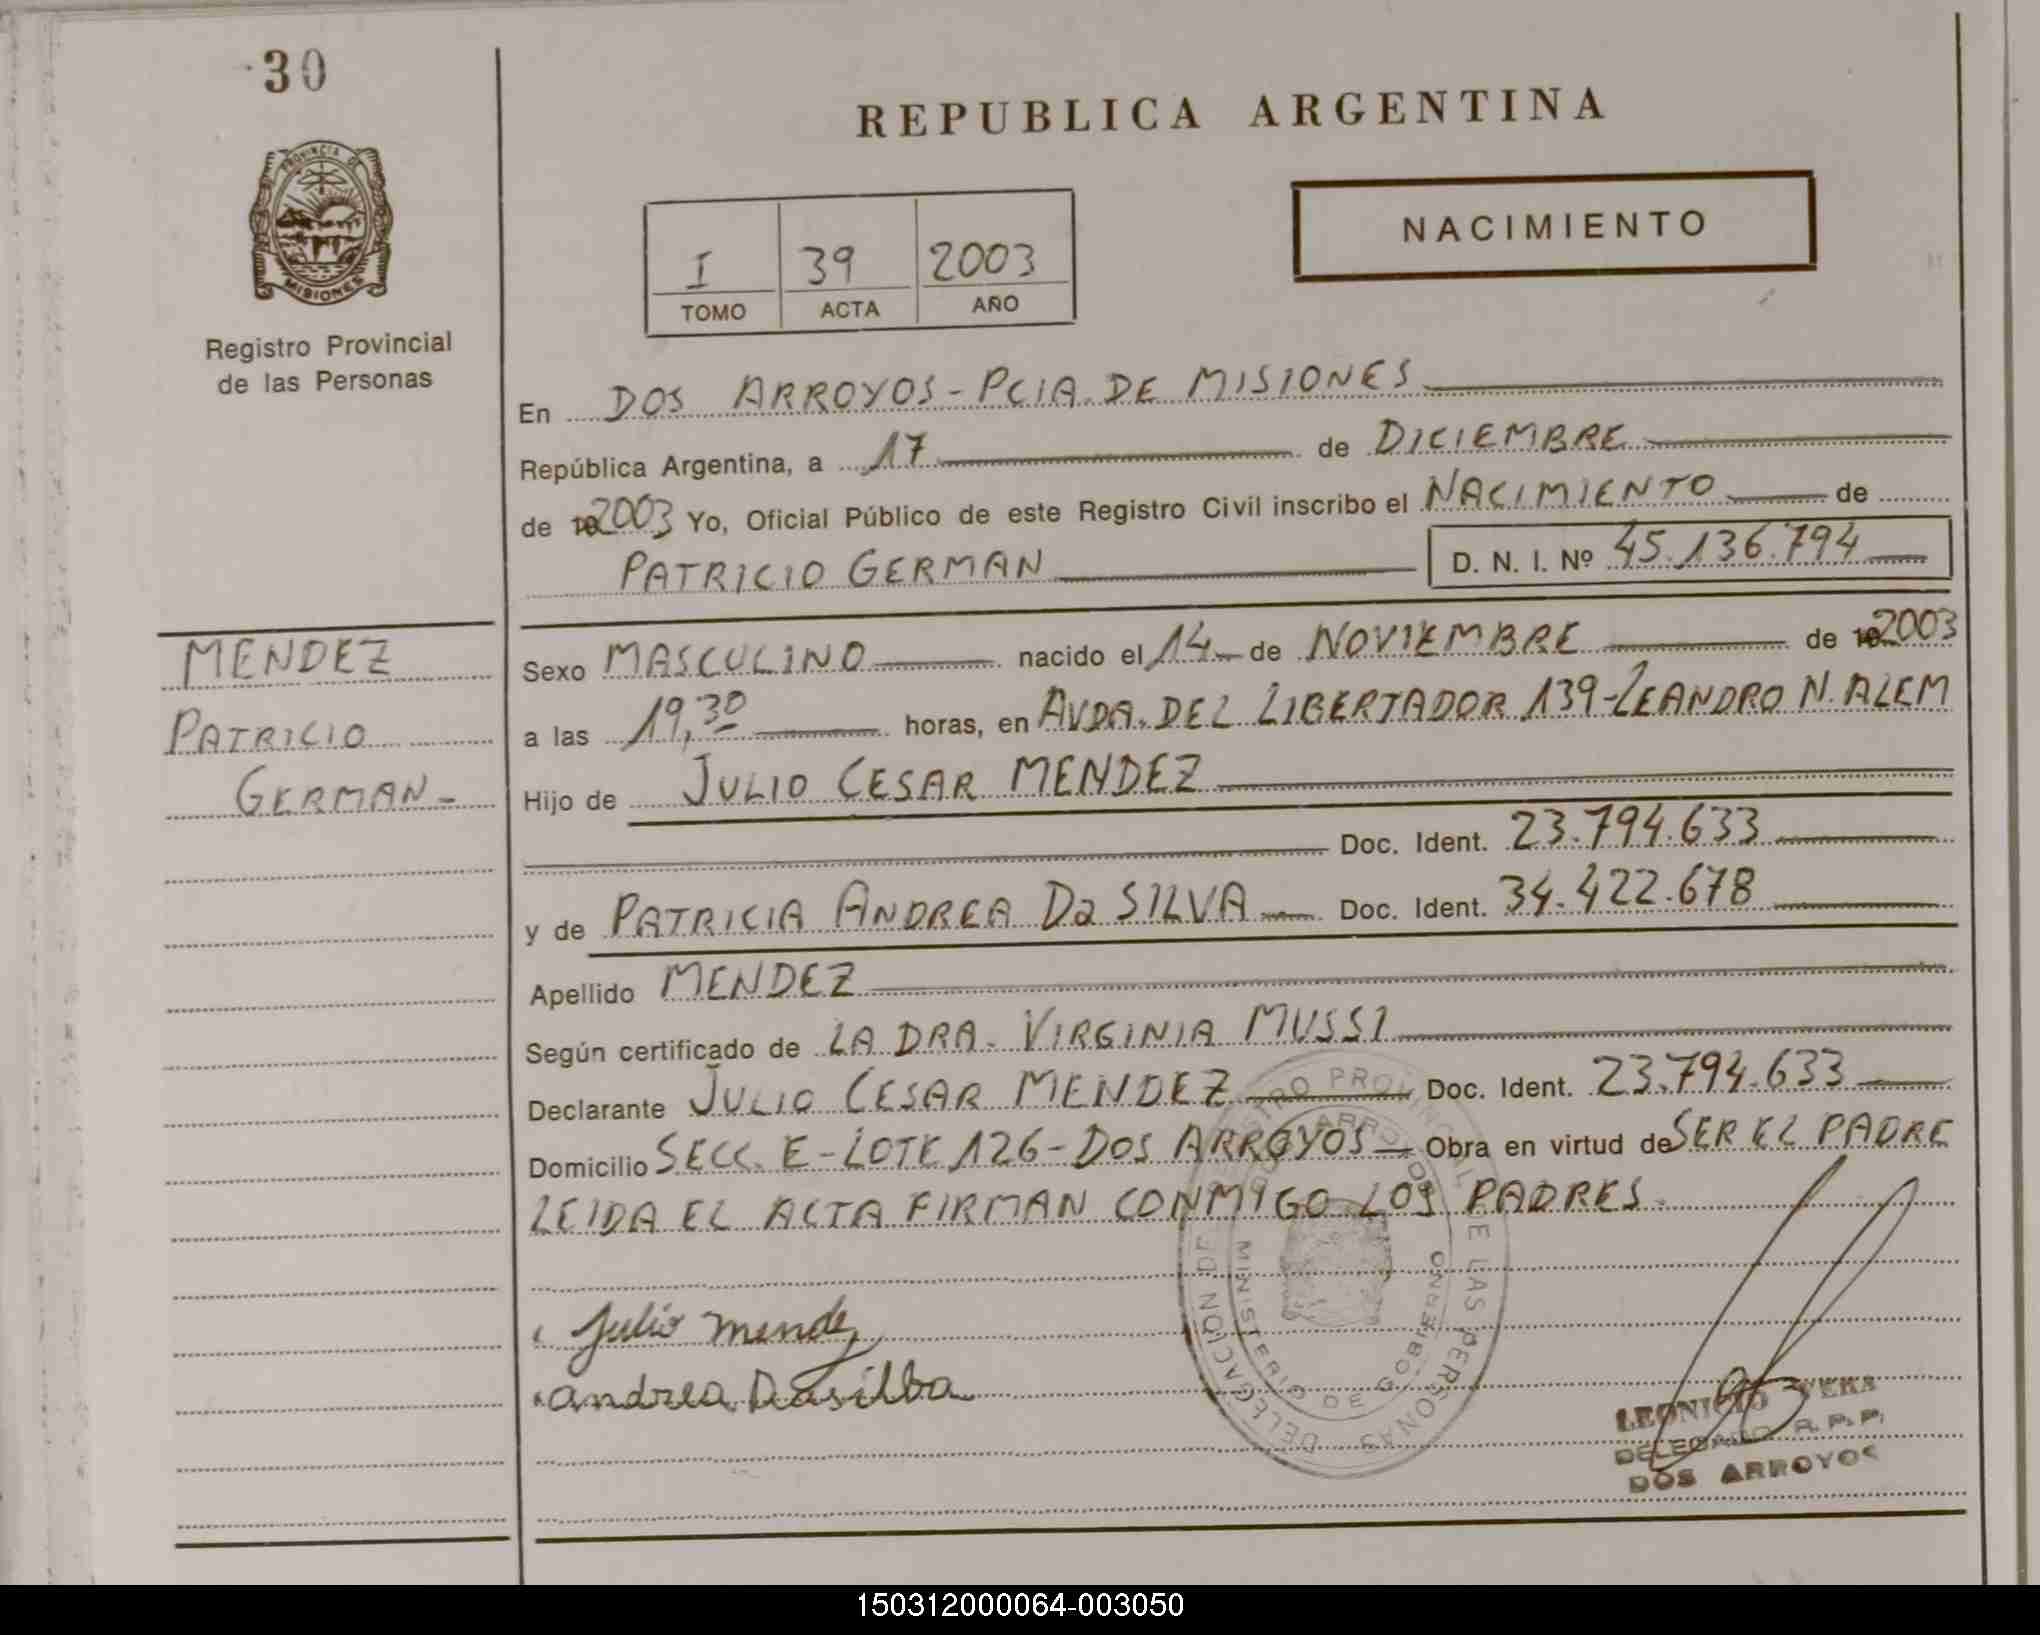 30
REPUBLICA ARGENTINA
PROVINCIA DE
MISIONES
Registro Provincial
de las Personas
NACIMIENTO
I 39 2003
TOMO ACTA AÑO
En DOS ARROYOS - PCIA. DE MISIONES
República Argentina, a 17 de DICIEMBRE
de 2003 Yo, Oficial Público de este Registro Civil inscribo el NACIMIENTO de
PATRICIO GERMAN D. N. I. Nº 45.136.794
MENDEZ
PATRICIO
GERMAN-
Sexo MASCULINO nacido el 14 de NOVIEMBRE de 2003
a las 19,30 horas, en AVDA. DEL LIBERTADOR 139-LEANDRO N. ALEM
Hijo de JULIO CESAR MENDEZ
Doc. Ident. 23.794.633
y de PATRICIA ANDREA Da SILVA Doc. Ident. 34.422.678
Apellido MENDEZ
Según certificado de LA DRA. VIRGINIA MUSSI
Declarante JULIO CESAR MENDEZ Doc. Ident. 23.794.633
Domicilio SECC. E-LOTE 126-DOS ARROYOS Obra en virtud de SER EL PADRE
LEIDA EL ACTA FIRMAN CONMIGO LOS PADRES.
Julio Mendez
Andrea Dasilba
REGISTRO PROVINCIAL DE LAS PERSONAS
DELEGACION DE
DOS ARROYOS
MINISTERIO DE GOBIERNO
DELEGADO R.P.P.
DOS ARROYOS
150312000064-003050